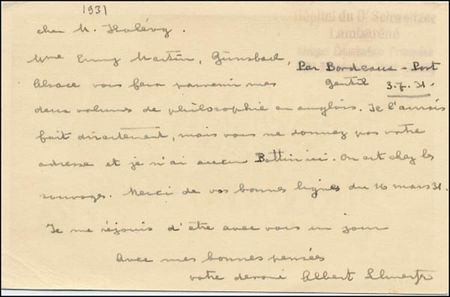 1931
Hôpital du Dr Schweitzer
Lambaréné
cher M. Halévy.
Mme Emmy Martin, Gunsbach,
Par Bordeaux - Port
Gentil 3.7.31.
Alsace vous fera parvenir mes
deux volumes de philosophie en anglais. Je l'aurais
fait directement, mais vous ne donnez pas votre
adresse et je n'ai aucun Bottin ici. On est chez les
sauvages. Merci de vos bonnes lignes du 16 mars 31.
Je me réjouis d'être avec vous un jour
Avec mes bonnes pensées
votre dévoué Albert Schweitzer